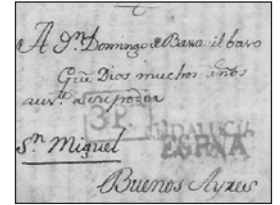 A Dn. Domingo de Basavilbaso
Gue Dios muchos años
aus.te a su poder
3
Sn Miguel
ANDALUCIA
ESPAÑA
Buenos Ayres